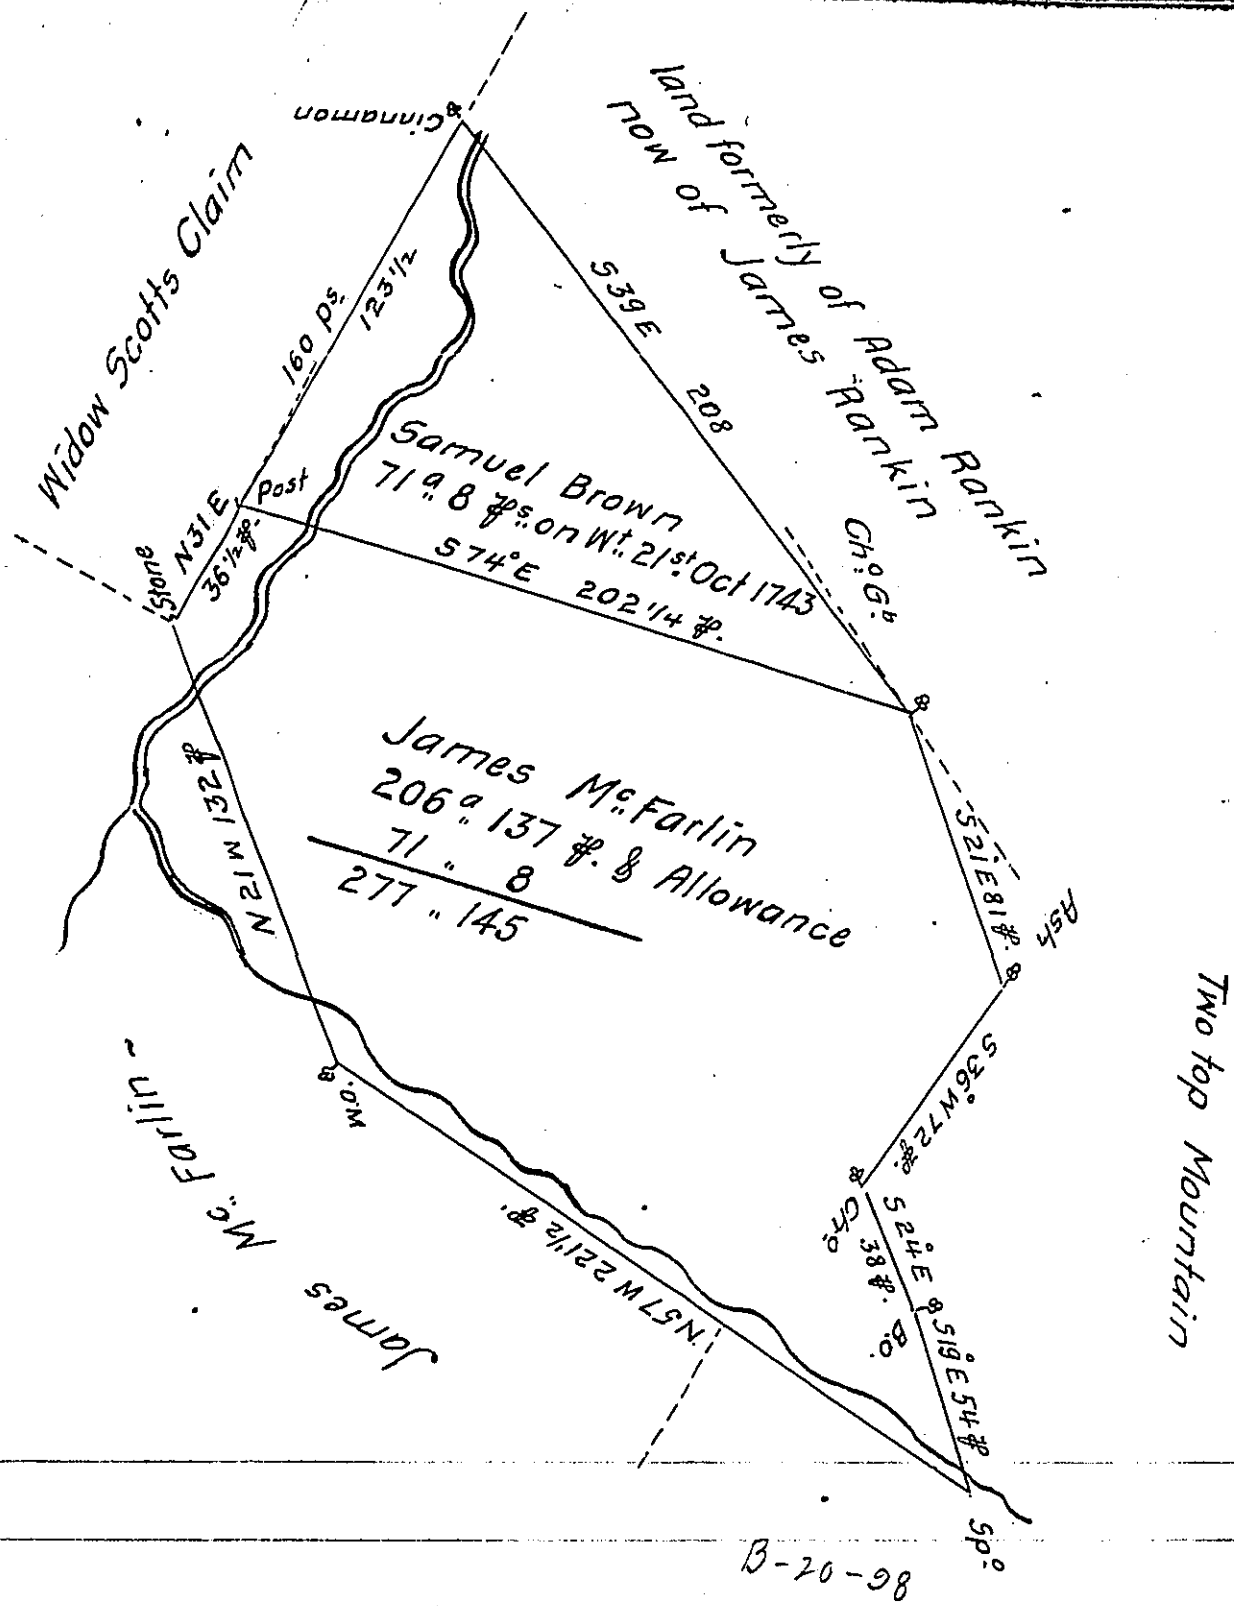 Cinnamon
land formerly of Adam Rankin
now of James Rankin
Widow Scotts Claim
160 ps.
123 1/2
S39E 208
Samuel Brown
71 a 8 ps. on Wt. 21st. Oct 1743
S 74° E 202 1/4 p.
Post
N 31 E
36 1/2 p.
Stone
Cho. Gb
James Mc Farlin
206 a 137 p. & Allowance
71 " 8
277 " 145
N 21 W 132 p
S 21 E 81 p.
Ash
Two top Mountain
S 36° W 72 p.
Cho
S 24° E
38 p.
B.O.
S 19° E 54 p
Spo
W.O.
N 57 W 221 1/2 p.
James Mc. Farlin ~
B-20-98